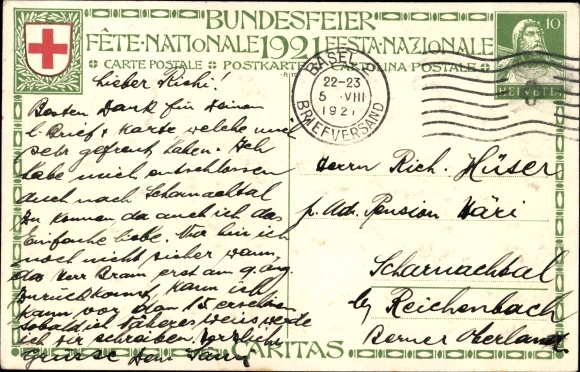 BUNDESFEIER
FÊTE·NATIONALE 1921 FESTA·NAZIONALE
CARTE POSTALE POSTKARTE CARTOLINA POSTALE
10
HELVETIA
BASEL
22-23
5. VIII
1921
BRIEFVERSAND
Lieber Richi!
Besten Dank für Deinen
l. Brief & Karte welche mich
sehr gefreut haben. Ich
habe mich entschlossen
auch nach Scharnachtal
zu kommen da auch ich das
Einfache liebe. Nur bin ich
noch nicht sicher wann,
da Herr Bram erst am 9. Aug.
zurückkommt, kann ich
kaum vor dem 15. erscheinen
sobald ich Näheres weiss werde
ich dir schreiben. Herzliche
Grüsse Dein
Herrn Rich. Hüser
p. Ad. Pension Däri
Scharnachtal
by Reichenbach
Berner Oberland
CARITAS